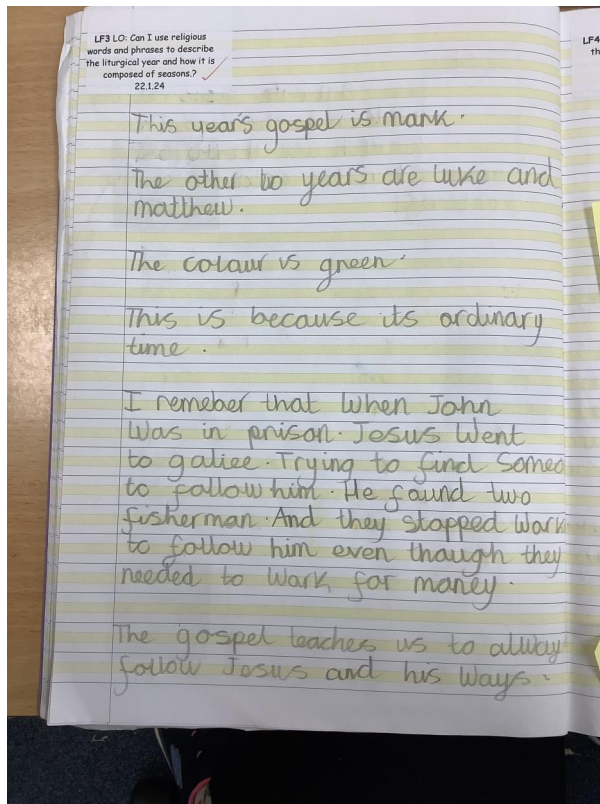 LF3 LO: Can I use religious
words and phrases to describe
the liturgical year and how it is
composed of seasons.?
22.1.24
This year's gospel is mark.
The other to years are luke and
matthew.
The colour is green.
This is because its ordinary
time.
I remeber that when John
was in prison. Jesus went
to galiee. Trying to find Someo
to follow him. He found two
fisherman. And they stopped work
to follow him even though they
needed to work for money.
The gospel teaches us to alway
follow Jesus and his ways.
LF4
th